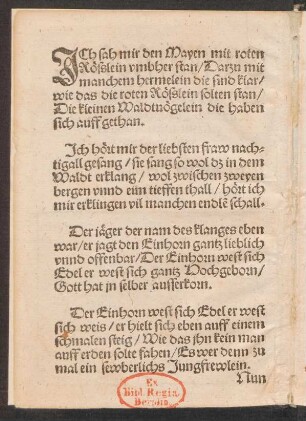 ICh sah mir den Mayen mit roten
Rößlein vmbher stan / Darzu mit
manchem hermelein die sind klar /
wie das die roten Rößlein solten stan /
Die kleinen Waldtuögelein die haben
sich auff gethan.
Jch hört mir der liebsten fraw nach-
tigall gesang / sie sang so wol dz in dem
Waldt erklang / wol zwischen zweyen
bergen vnnd ein tieffen thall / hört ich
mir erklingen vil manchen endlẽ schall.
Der jäger der nam des klanges eben
war / er jagt den Einhorn gantz lieblich
vnnd offenbar / Der Einhorn west sich
Edel er west sich gantz Hochgeborn /
Gott hat jn selber ausserkorn.
Der Einhorn west sich Edel er west
sich weis / er hielt sich eben auff einem
schmalen steig / Wie das jhn kein man
auff erden solte fahen / Es wer denn zu
mal ein sewberlichs Jungfrewlein.
Nun
Ex
Bibl. Regia
Berolin.